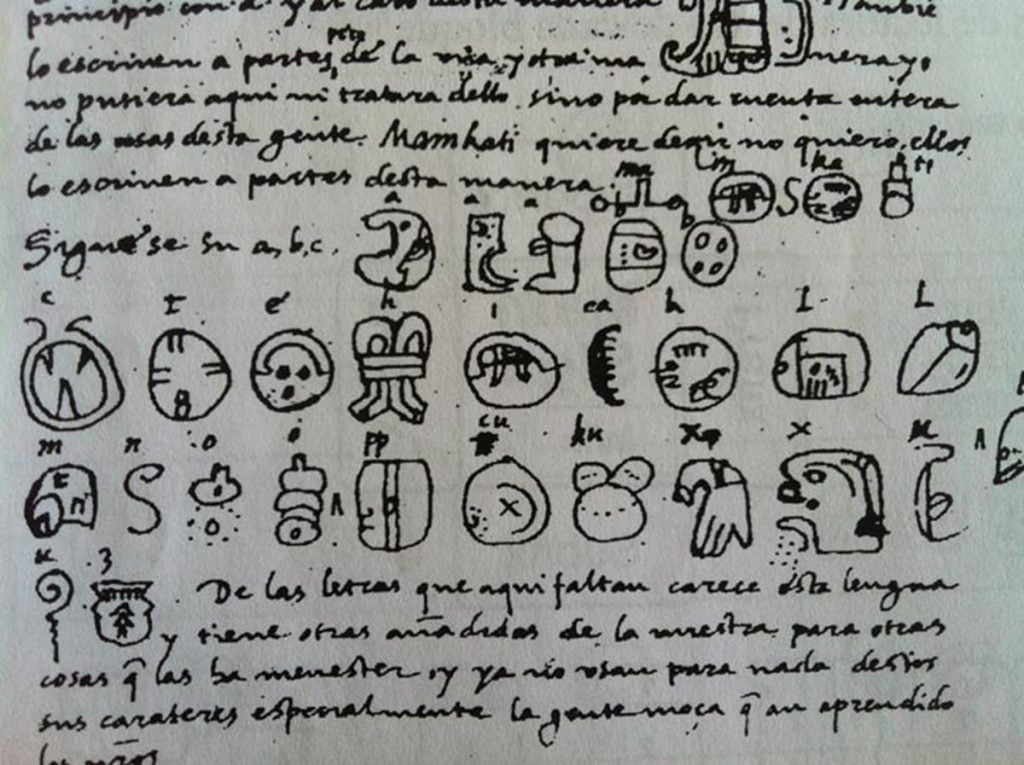 principio con a y al cabo desta manera
lo escriven a partes de la una y otra ma nera yo
no pusiera aqui ni tratara dello sino por dar cuenta entera
de las cosas desta gente. Mainkati quiere dezir no quiero, ellos
lo escriven a partes desta manera. ma i n ka ti
Siguese su a, b, c. a a a b b
c t e h i ca k l l
m n o o pp cu ku x x u
u z De las letras que aqui faltan carece esta lengua
y tiene otras añadidas de la nuestra para otras
cosas q̃ las ha menester, y ya no usan para nada destos
sus carateres especialmente la gente moça q̃ an aprendido
los nr̃os